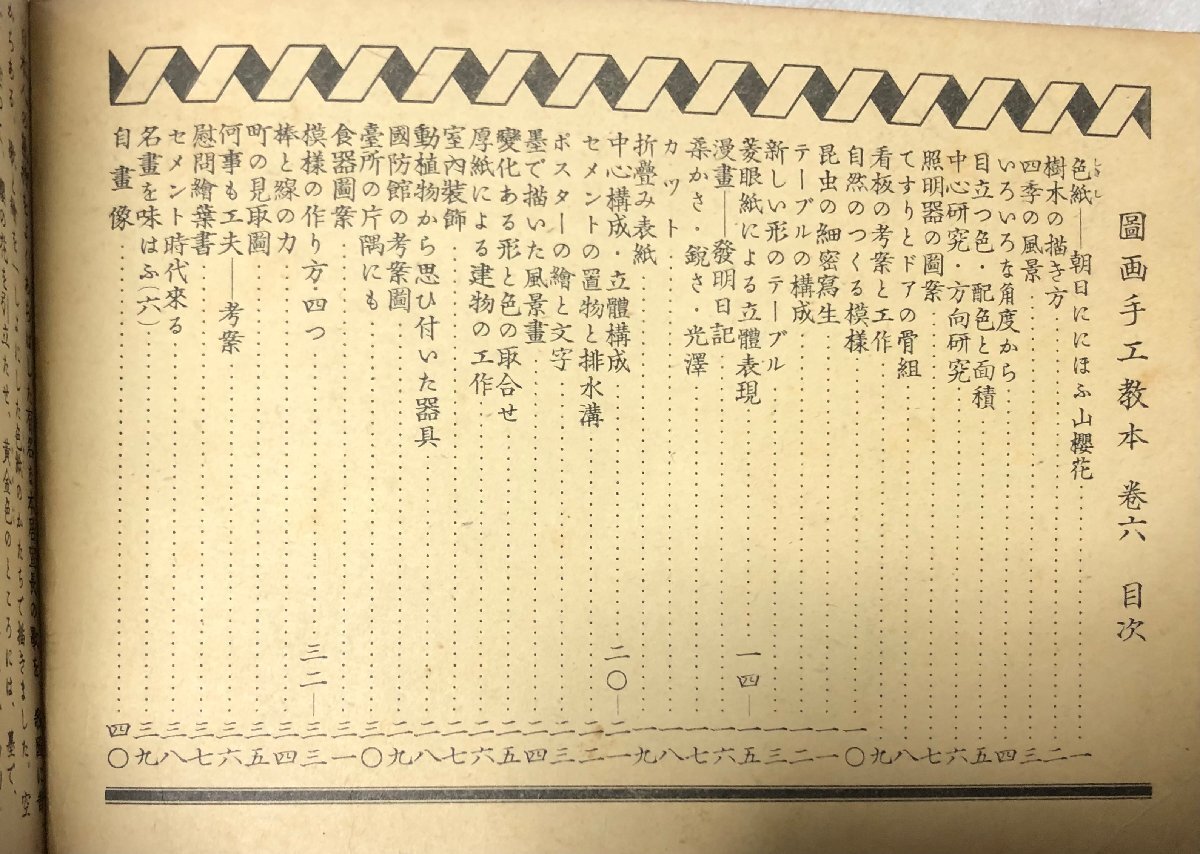 圖画手工教本 卷六 目次
色紙──朝日ににほふ山櫻花……一
しきし
樹木の描き方……二
四季の風景……三
いろいろな角度から……四
目立つ色・配色と面積……五
中心研究・方向研究……六
照明器の圖案……七
てすりとドアの骨組……八
看板の考案と工作……九
自然のつくる模様……一〇
昆虫の細密寫生……一一
テーブルの構成……一二
新しい形のテーブル……一三
菱眼紙による立體表現……一四─一五
漫畫──發明日記……一六
柔かさ・鋭さ・光澤……一七
カット……一八
折疊み表紙……一九
中心構成・立體構成……二〇─二一
セメントの置物と排水溝……二二
ポスターの繪と文字……二三
墨で描いた風景畫……二四
變化ある形と色の取合せ……二五
厚紙による建物の工作……二六
室內裝飾……二七
動植物から思ひ付いた器具……二八
國防館の考案圖……二九
臺所の片隅にも……三〇
食器圖案……三一
模様の作り方・四つ……三二─三三
棒と線の力……三四
町の見取圖……三五
何事も工夫──考案……三六
慰問繪葉書……三七
セメント時代來る……三八
名畫を味はふ(六)……三九
自畫像……四〇